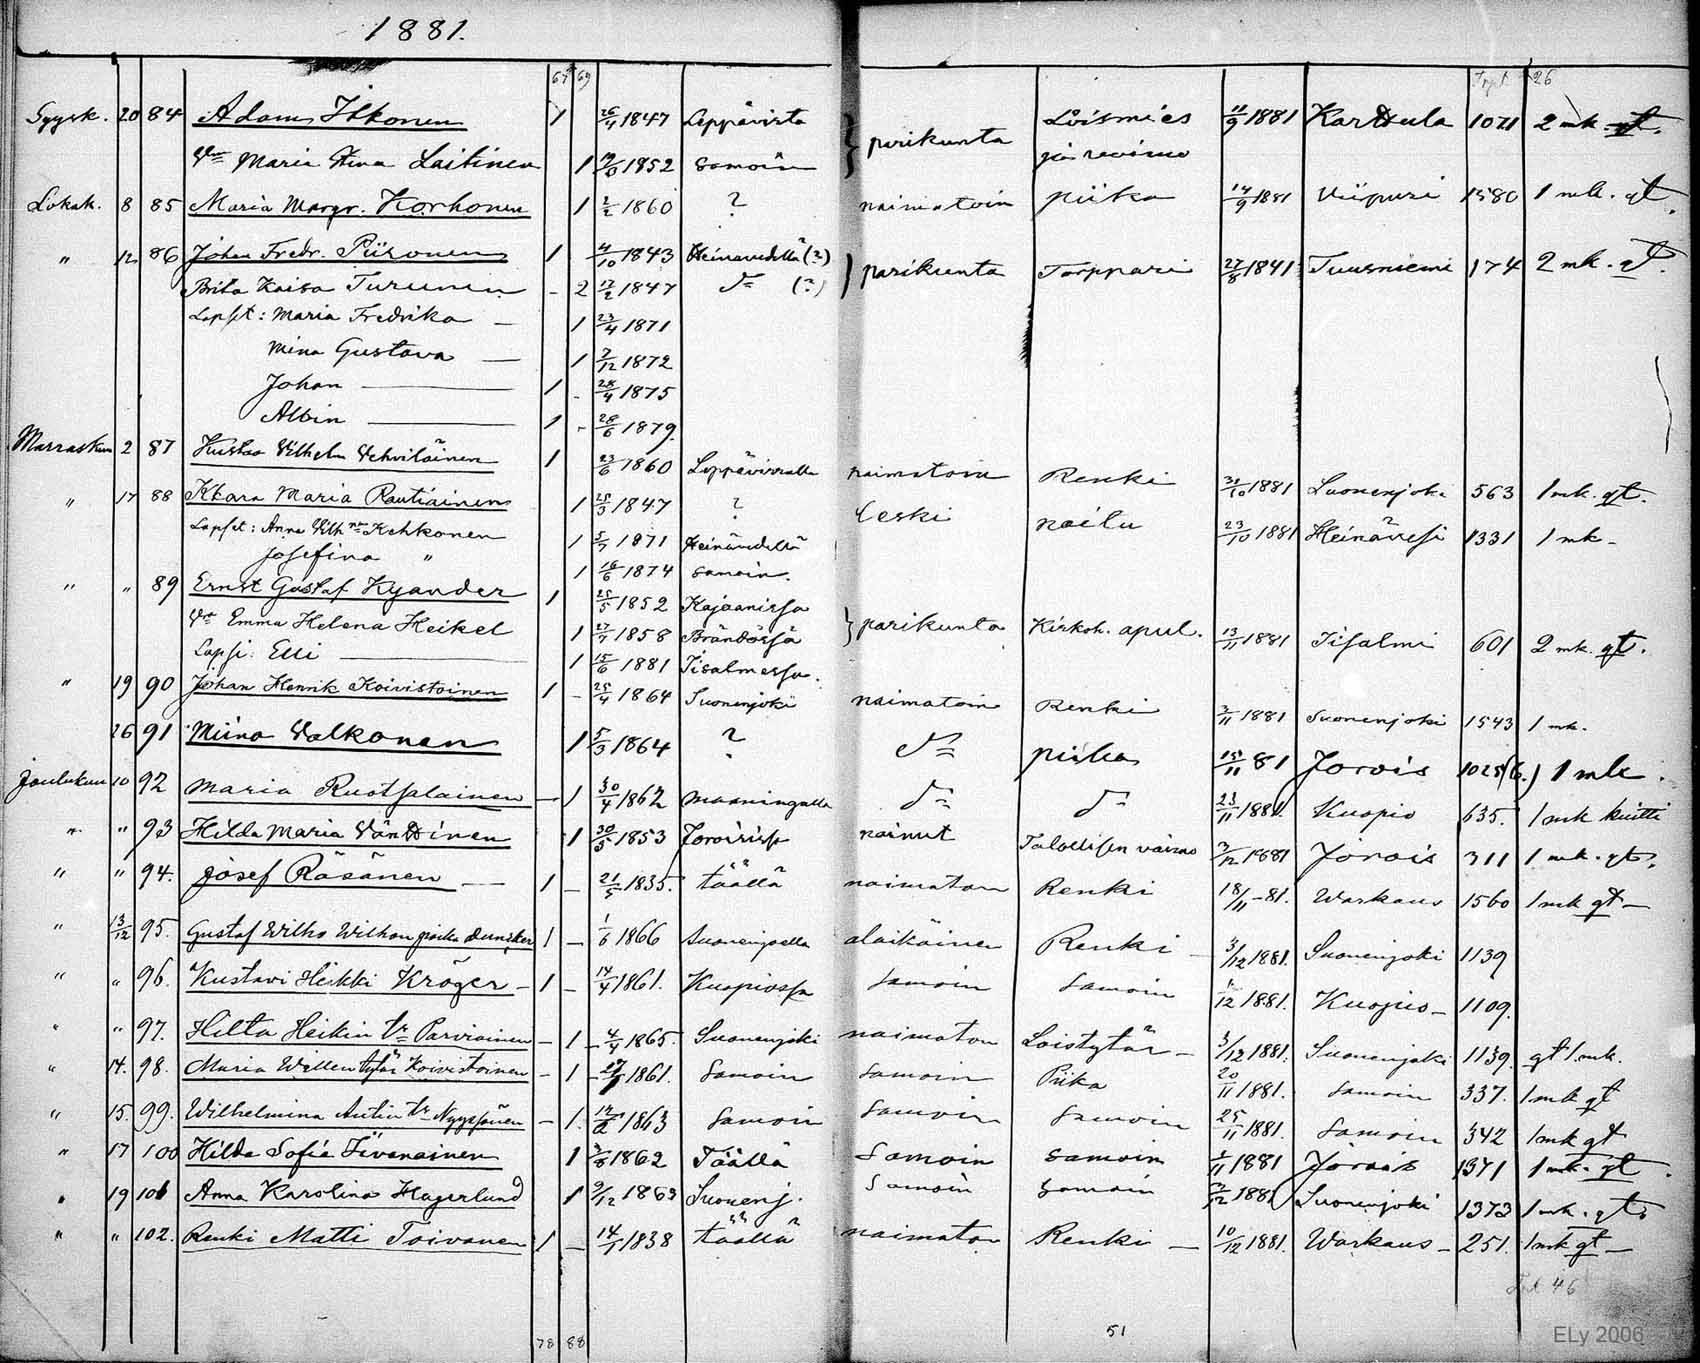 1881.
67 69 26
Syysk. 20 84 Adam Itkonen 1 26/4 1847 Leppävirta } parikunta Loismies 11/9 1881 Karttula 1071 2 mk. qt.
Vmo Maria Stina Laitinen 1 1852 samoin ja vaimo
Lokak. 8 85 Maria Margr. Korhonen 1 2/2 1860 ? naimatoin piika 14/9 1881 Viipuri 1580 1 mk. qt.
" 12 86 Johan Fredr. Piironen 1 4/10 1843 Heinävedellä (?) } parikunta Torppari 27/8 1841 Tuusniemi 174 2 mk. qt.
Brita Kaisa Turunen - 2 17/2 1847 do (?)
Lapset: Maria Fredrika — 1 23/4 1871
Mina Gustava — 1 7/12 1872
Johan — 1 - 28/4 1875
Albin — 1 - 28/6 1879.
Marraskuu 2 87 Kustaa Vilhelm Vehviläinen 1 23/6 1860 Leppävirralla naimatoin Renki 31/10 1881 Suonenjoki 563 1 mk. qt.
" 17 88 Klara Maria Rautiainen 1 1847 ? Leski nöitu 23/10 1881 Heinävesi 1331 1 mk-
Lapset: Anna Vilhna Kehkonen 1 1871 Heinävedellä
Josefina " 1 16/6 1874 samoin.
" " 89 Ernst Gustaf Kyander 1 25/5 1852 Kajaanissa
Vmo Emma Helena Heikel 1 1858 Brändössä } parikunta Kirkoh. apul. 13/11 1881 Iisalmi 601 2 mk. qt.
Lapsi: Elli — 1 15/6 1881 Iisalmessa.
" 19 90 Johan Henrik Koivistoinen 1 - 25/4 1864 Suonenjoki naimatoin Renki 3/11 1881 Suonenjoki 1543 1 mk.
26 91 Miina Valkonen 1 5/3 1864 ? do piika 15/11 81 Jorois 1025 (6.) 1 mk.
Joulukuu 10 92 Maria Ruotsalainen — 1 30/4 1862 Maaningalla do do 23/11 1881. Kuopio 635. 1 mk kuitti
" " 93 Hilda Maria Vänttinen 1 1853 Joroisissa nainut Talollisen vaimo 3/12 1881 Jorois 311 1 mk. qt.
" " 94. Josef Räsänen — 1 - 21/5 1835. täällä naimaton Renki 18/11 -81. Warkaus 1560 1 mk qt-
" 13/12 95. Gustaf Wilho Wilhon poika Duncker 1 - 1/6 1866 Suonenjoella alaikäinen Renki - 3/12 1881. Suonenjoki 1139
" " 96. Kustavi Heikki Kröger - 1 - 14/4 1861. Kuopiossa samoin samoin 1/12 1881. Kuopio- 1109.
" " 97. Hilta Heikin tr Parviainen - 1 - 4/4 1865. Suonenjoki naimaton Loistytär - 3/12 1881. Suonenjoki 1139. qt 1 mk.
" 14. 98. Maria Willem tytär Koivistoinen - 1 - 1861. samoin samoin Piika 20/11 1881. samoin 337. 1 mk qt
" 15. 99. Wilhelmina Antin tr Nyyssönen - 1. 1863 samoin samoin samoin 25/11 1881. samoin 342 1 mk qt
" 17 100 Hilda Sofia Iivanainen 1 1862 Täällä samoin samoin 1881 Jorois 1371 1 mk. qt
" 19 101 Anna Karolina Hagerlund 1 9/12 1863 Suonenj. samoin samoin 1881 Suonenjoki 1373 1 mk. qt.
" " 102. Renki Matti Toivanen 1 - 1838 täällä naimaton Renki - 10/12 1881. Warkaus- 251. 1 mk qt-
46
78 88
51
ELy 2006